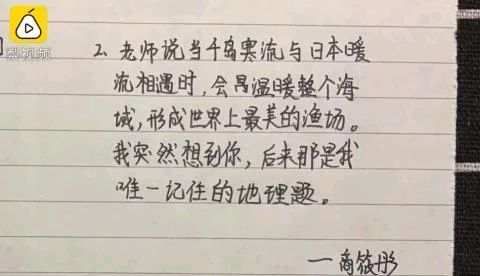 梨视频
2. 老师说当千岛寒流与日本暖
流相遇时，会温暖整个海
域，形成世界上最美的渔场。
我突然想到你，后来那是我
唯一记住的地理题。
—商筱彤